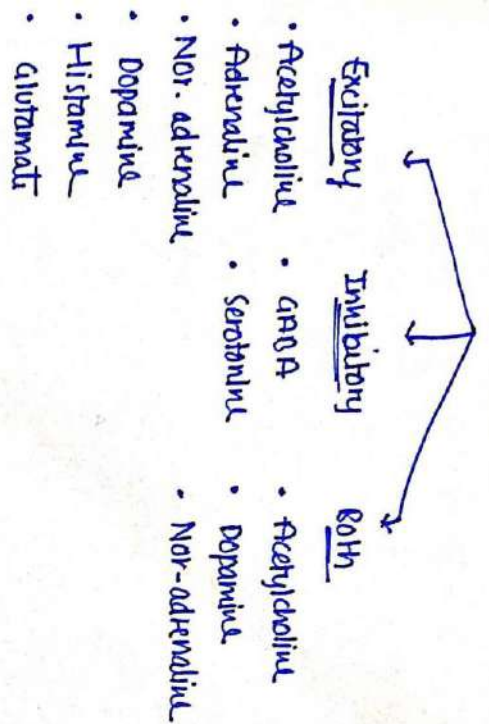 Excitatory
• Acetylcholine
• Adrenaline
• Nor-adrenaline
• Dopamine
• Histamine
• Glutamate
Inhibitory
• GABA
• Serotonine
Both
• Acetylcholine
• Dopamine
• Nor-adrenaline